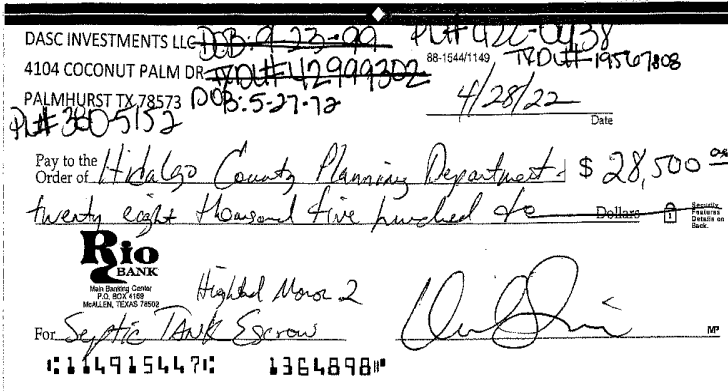 DASC INVESTMENTS LLC DOB: 9-23-99 PL# 422-0438
4104 COCONUT PALM DR TXDL# 42999302 88-1544/1149 TXDL#-19567808
PALMHURST TX 78573 DOB: 5-27-72 4/28/22
PL# 380-5152 Date
Pay to the Order of Hidalgo County Planning Department $ 28,500 00
twenty eight thousand five hundred Dollars Security Features Details on Back.
Rio
BANK
Main Banking Center
P.O. BOX 4169
McALLEN, TEXAS 78502
Highland Manor 2
For Septic TANK Escrow MP
114915447 1364898